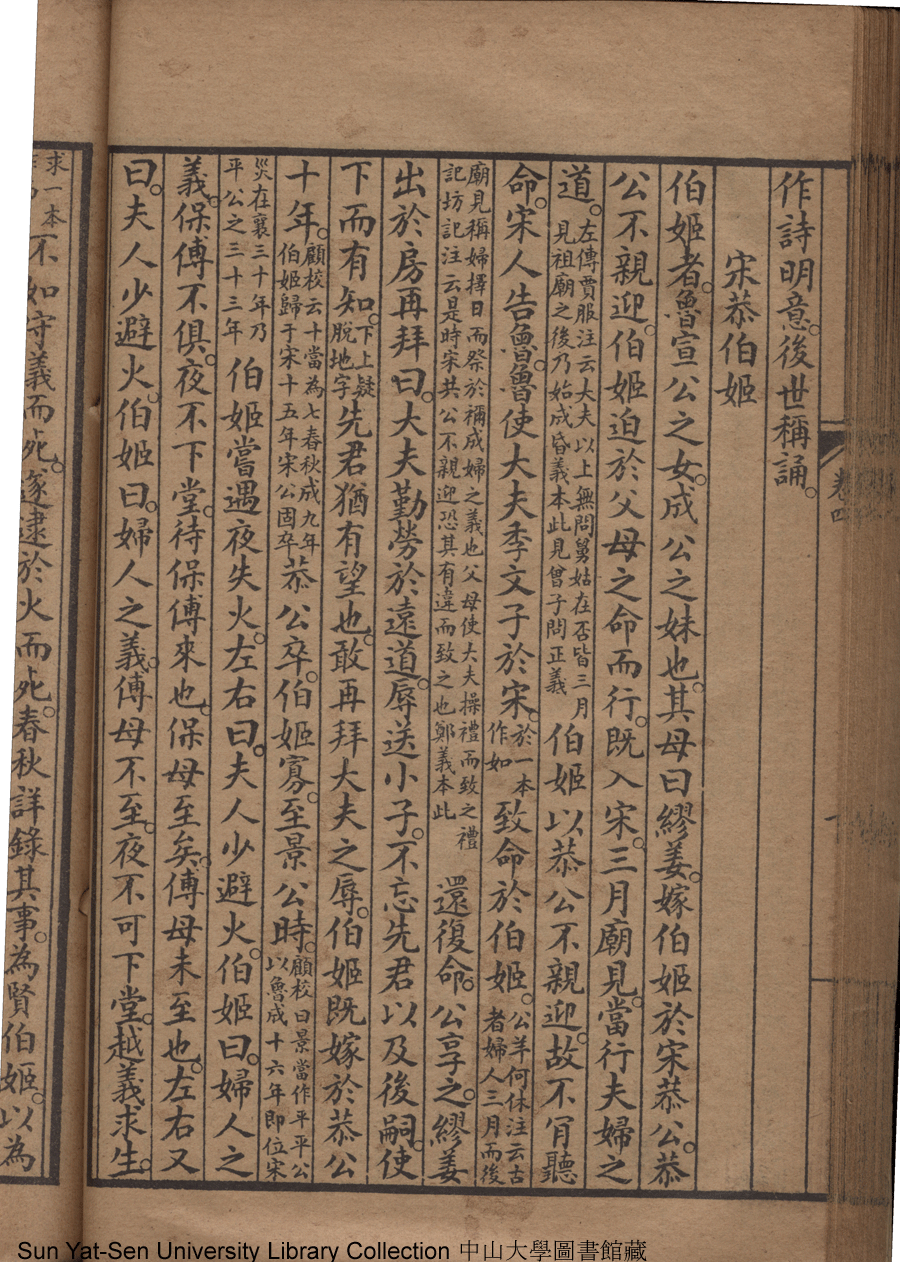 作詩明意。後世稱誦。
宋恭伯姬
伯姬者。魯宣公之女。成公之妹也。其母曰繆姜。嫁伯姬於宋恭公。恭
公不親迎。伯姬迫於父母之命而行。既入宋。三月廟見。當行夫婦之
道。左傳賈服注云大夫以上無問舅姑在否皆三月見祖廟之後乃始成昏義本此見曾子問正義伯姬以恭公不親迎。故不肎聽
命。宋人告魯。魯使大夫季文子於宋。於一本作如致命於伯姬。公羊何休注云古者婦人三月而後
廟見稱婦擇日而祭於禰成婦之義也父母使大夫操禮而致之禮記坊記注云是時宋共公不親迎恐其有違而致之也鄭義本此還復命。公享之。繆姜
出於房。再拜曰。大夫勤勞於遠道。辱送小子。不忘先君以及後嗣。使
下而有知。下上疑脫地字先君猶有望也。敢再拜大夫之辱。伯姬既嫁於恭公
十年。顧校云十當為七春秋成九年伯姬歸于宋十五年宋公固卒恭公卒。伯姬寡。至景公時。顧校曰景當作平平公以魯成十六年即位宋
災在襄三十年乃平公之三十三年伯姬嘗遇夜失火。左右曰。夫人少避火。伯姬曰。婦人之
義。保傅不俱。夜不下堂。待保傅來也。保母至矣。傅母未至也。左右又
曰。夫人少避火。伯姬曰。婦人之義。傅母不至。夜不可下堂。越義求生。
求一本不如守義而死。遂逮於火而死。春秋詳錄其事。為賢伯姬。以為
卷四
Sun Yat-Sen University Library Collection 中山大學圖書館藏